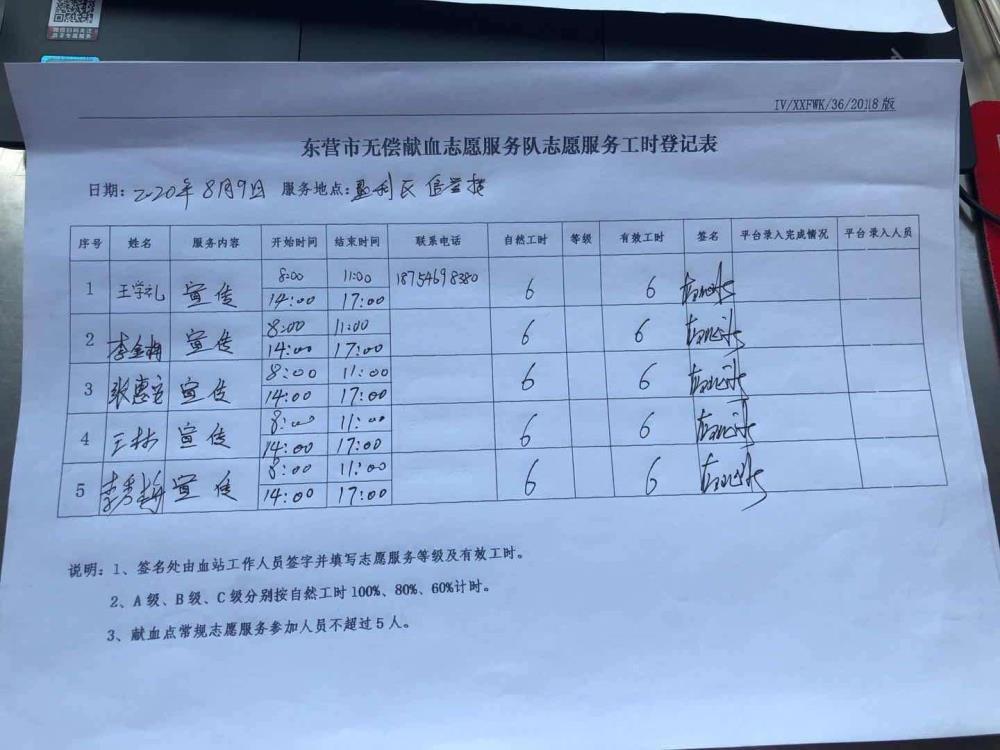 IV/XXFWK/36/2018版
东营市无偿献血志愿服务队志愿服务工时登记表
日期：2020年8月9日 服务地点：垦利区
序号 姓名 服务内容 开始时间 结束时间 联系电话 自然工时 等级 有效工时 签名 平台录入完成情况 平台录入人员
1 王学礼 宣传 8:00 11:00 18754698380 6 6
14:00 17:00
2 李金梅 宣传 8:00 11:00 6 6
14:00 17:00
3 张惠 宣传 8:00 11:00 6 6
14:00 17:00
4 王林 宣传 8:00 11:00 6 6
14:00 17:00
5 李秀梅 宣传 8:00 11:00 6 6
14:00 17:00
说明：1、签名处由血站工作人员签字并填写志愿服务等级及有效工时。
2、A级、B级、C级分别按自然工时100%、80%、60%计时。
3、献血点常规志愿服务参加人员不超过5人。